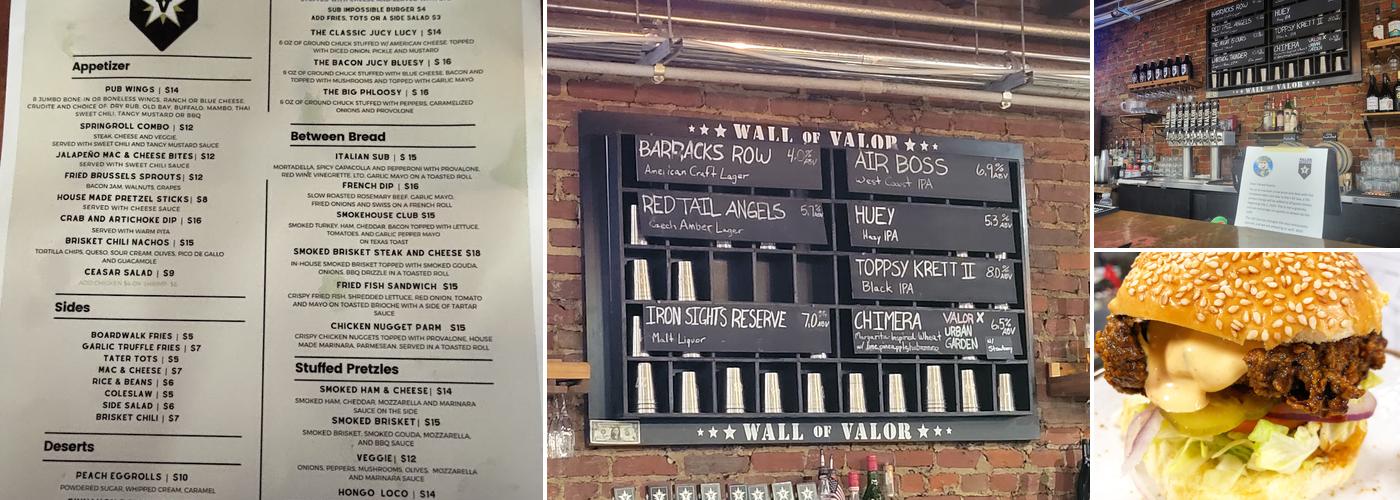 Appetizer
PUB WINGS | $14
8 JUMBO BONE-IN OR BONELESS WINGS, RANCH OR BLUE CHEESE,
CRUDITE AND CHOICE OF: DRY RUB, OLD BAY, BUFFALO, MAMBO, THAI
SWEET CHILI, TANGY MUSTARD OR BBQ
SPRINGROLL COMBO | $12
STEAK, CHEESE AND VEGGIE,
SERVED WITH SWEET CHILI AND TANGY MUSTARD SAUCE
JALAPEÑO MAC & CHEESE BITES| $12
SERVED WITH SWEET CHILI SAUCE
FRIED BRUSSELS SPROUTS| $12
BACON JAM, WALNUTS, GRAPES
HOUSE MADE PRETZEL STICKS| $8
SERVED WITH CHEESE SAUCE
CRAB AND ARTICHOKE DIP | $16
SERVED WITH WARM PITA
BRISKET CHILI NACHOS | $15
TORTILLA CHIPS, QUESO, SOUR CREAM, OLIVES, PICO DE GALLO
AND GUACAMOLE
CEASAR SALAD | $9
ADD CHICKEN $4 OR SHRIMP $6
Sides
BOARDWALK FRIES | $5
GARLIC TRUFFLE FRIES | $7
TATER TOTS | $5
MAC & CHEESE | $7
RICE & BEANS | $6
COLESLAW | $5
SIDE SALAD | $6
BRISKET CHILI | $7
Deserts
PEACH EGGROLLS | $10
POWDERED SUGAR, WHIPPED CREAM, CARAMEL
SUB IMPOSSIBLE BURGER $4
ADD FRIES, TOTS OR A SIDE SALAD $3
THE CLASSIC JUCY LUCY | $14
6 OZ OF GROUND CHUCK STUFFED W/ AMERICAN CHEESE TOPPED
WITH DICED ONION, PICKLE AND MUSTARD
THE BACON JUCY BLUESY | $ 16
6 OZ OF GROUND CHUCK STUFFED WITH BLUE CHEESE, BACON AND
TOPPED WITH MUSHROOMS AND TOPPED WITH GARLIC MAYO
THE BIG PHLOOSY | $ 16
6 OZ OF GROUND CHUCK STUFFED WITH PEPPERS, CARAMELIZED
ONIONS AND PROVOLONE
Between Bread
ITALIAN SUB | $ 15
MORTADELLA, SPICY CAPACOLLA AND PEPPERONI WITH PROVALONE,
RED WINE VINEGRETTE, LTO, GARLIC MAYO ON A TOASTED ROLL
FRENCH DIP | $16
SLOW ROASTED ROSEMARY BEEF, GARLIC MAYO,
FRIED ONIONS AND SWISS ON A FRENCH ROLL
SMOKEHOUSE CLUB $15
SMOKED TURKEY, HAM, CHEDDAR, BACON TOPPED WITH LETTUCE,
TOMATOES, AND GARLIC PEPPER MAYO
ON TEXAS TOAST
SMOKED BRISKET STEAK AND CHEESE $18
IN-HOUSE SMOKED BRISKET TOPPED WITH SMOKED GOUDA,
ONIONS, BBQ DRIZZLE IN A TOASTED ROLL
FRIED FISH SANDWICH $15
CRISPY FRIED FISH, SHREDDED LETTUCE, RED ONION, TOMATO
AND MAYO ON TOASTED BRIOCHE WITH A SIDE OF TARTAR
SAUCE
CHICKEN NUGGET PARM $15
CRISPY CHICKEN NUGGETS TOPPED WITH PROVALONE, HOUSE
MADE MARINARA, PARMESEAN, SERVED IN A TOASTED ROLL
Stuffed Pretzles
SMOKED HAM & CHEESE| $14
SMOKED HAM, CHEDDAR, MOZZARELLA AND MARINARA
SAUCE ON THE SIDE
SMOKED BRISKET| $15
SMOKED BRISKET, SMOKED GOUDA, MOZZARELLA,
AND BBQ SAUCE
VEGGIE| $12
ONIONS, PEPPERS, MUSHROOMS, OLIVES, MOZZARELLA
AND MARINARA SAUCE
HONGO LOCO | $14
WALL OF VALOR
BARRACKS ROW 4.0% ABV
American Craft Lager
RED TAIL ANGELS 5.1% ABV
Czech Amber Lager
IRON SIGHTS RESERVE 7.0% ABV
Malt Liquor
AIR BOSS 6.9% ABV
West Coast IPA
HUEY 5.3% ABV
Hazy IPA
TOPPSY KRETT II 8.0% ABV
Black IPA
CHIMERA VALOR X URBAN GARDEN 6.5% ABV
Margarita Inspired Wheat
w/ lime pineapple habanero
w/ Strawberry
WALL OF VALOR
BARRACKS ROW
RED TAIL ANGELS
HUEY
TOPPSY KRETT II
CHIMERA
WALL OF VALOR